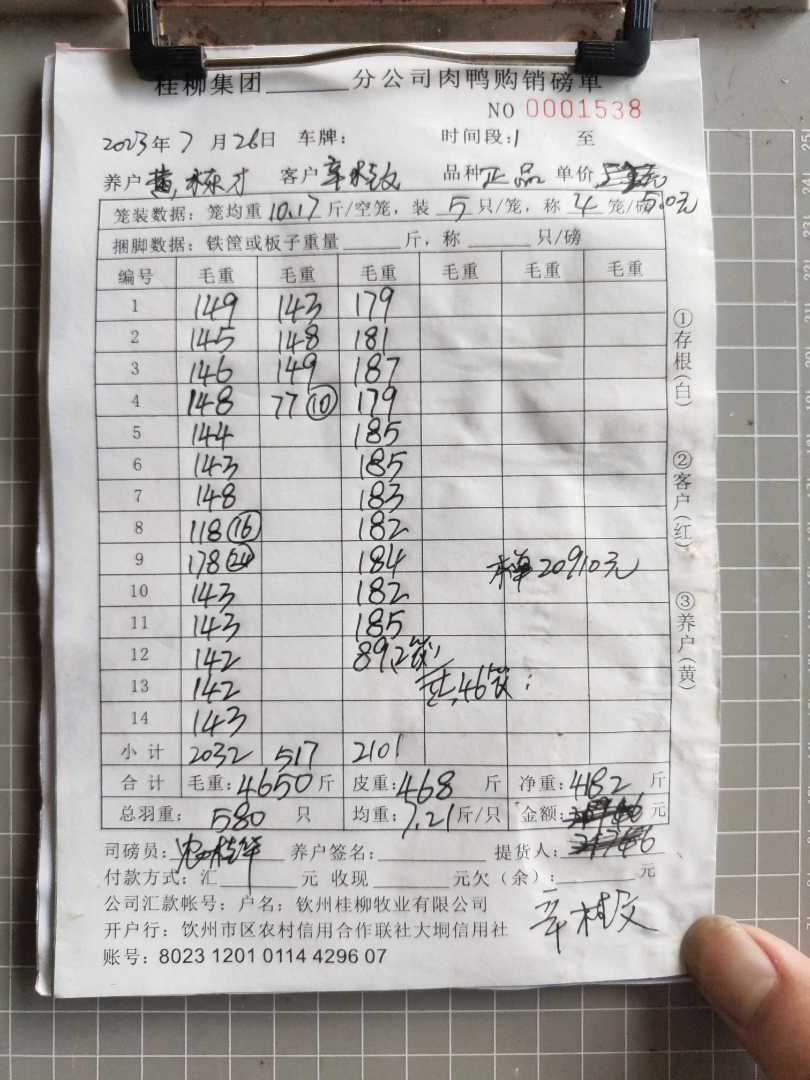 桂柳集团______分公司肉鸭购销磅单
NO 0001538
2023年7月26日 车牌: 时间段:1 至
养户 黄 才 客户 品种正品 单价
5.0元
笼装数据: 笼均重10.17斤/空笼, 装5只/笼, 称4笼/磅
捆脚数据: 铁筐或板子重量______斤, 称______只/磅
编号 毛重 毛重 毛重 毛重 毛重 毛重
1 149 143 179
2 145 148 181
3 146 149 187
4 148 77⑩ 179
5 144 185
6 143 185
7 148 183
8 118⑯ 182
9 178㉔ 184
10 143 182
11 143 185
12 142 89,2笼
13 142
14 143
20910元
46笼:
小计 2032 517 2101
合计 毛重:4650斤 皮重:468斤 净重:4182斤
总羽重: 580只 均重:7.21斤/只 金额: 元
司磅员: 养户签名:______ 提货人:
付款方式: 汇______元 收现______元欠(余):______元
公司汇款帐号: 户名: 钦州桂柳牧业有限公司
开户行: 钦州市区农村信用合作联社大垌信用社
账号: 8023 1201 0114 4296 07
①存根(白)
②客户(红)
③养户(黄)